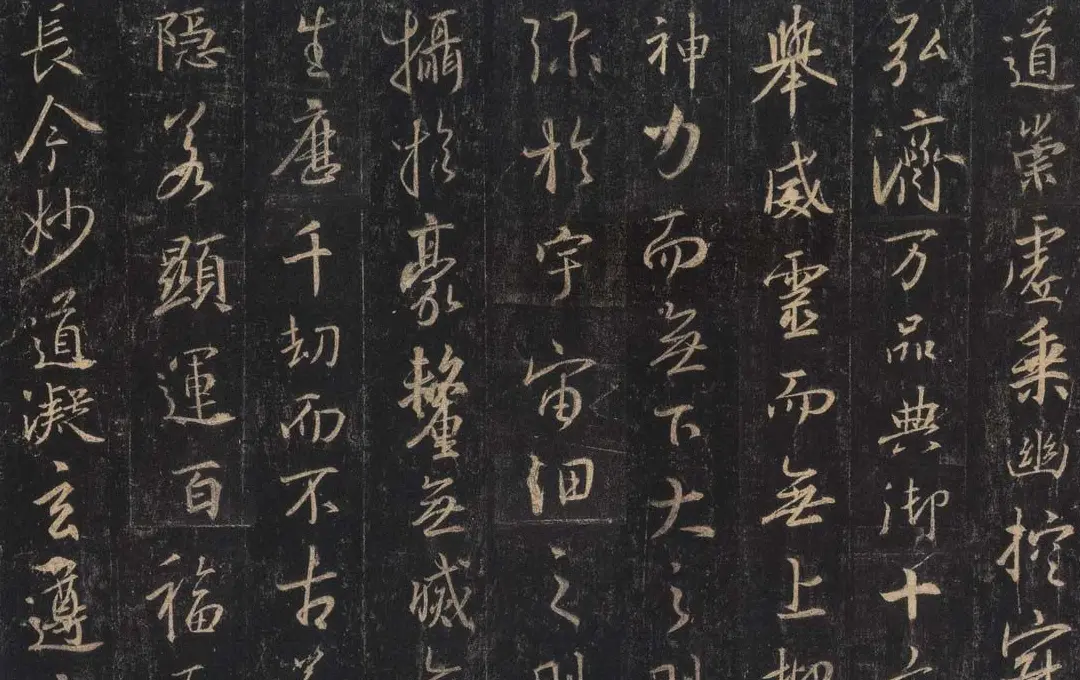 道崇虚乘幽控寂
弘济万品典御十方
舉威靈而無上抑
神力而无下大之則
弥於宇宙細之則
攝於豪釐無滅無
生歷千劫而不古若
隱若顯運百福而
長今妙道凝玄遵之